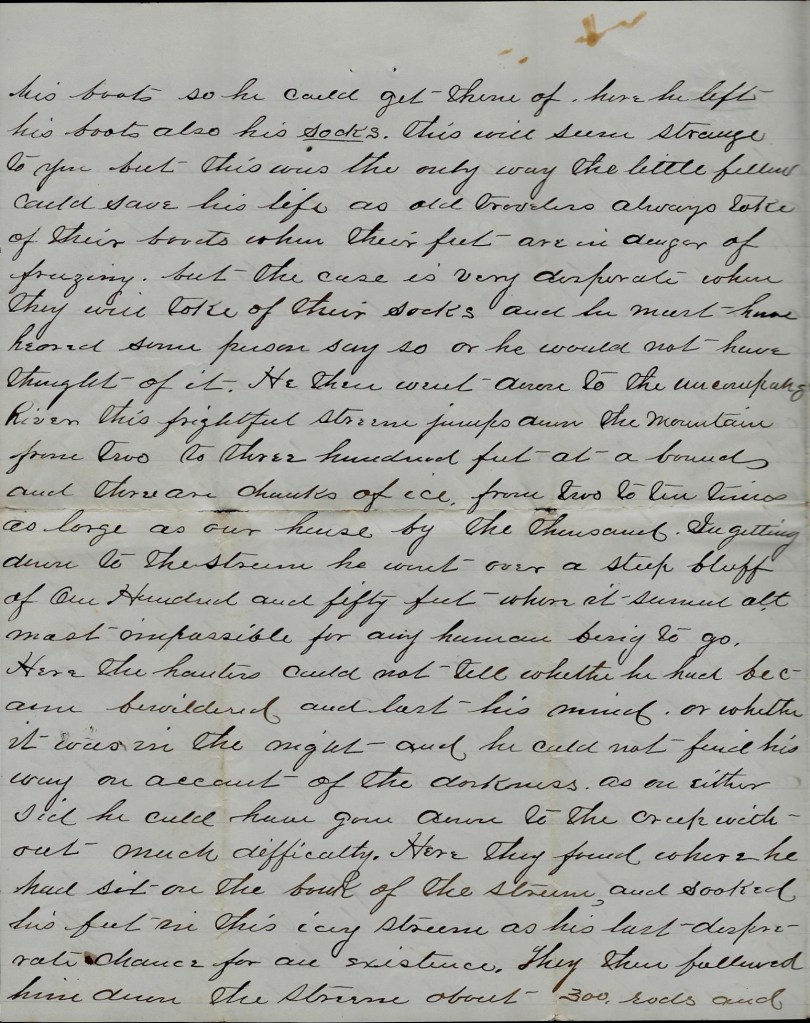 his boots so he could get them of. here he left
his boots also his socks. this will seem strange
to you but this was the only way the little fellow
could save his life as old travelers always take
of their boots when their feet are in danger of
frezing. but the case is very desperate when
they will take of their socks and he must have
heared some person say so or he would not have
thought of it. He then went down to the uncompahg
River this frightful streem jumps down the Mountain
from two to three hundred feet at a bound
and there are chunks of ice, from two to ten times
as large as our house by the thousand. In getting
down to the streem he went over a steep bluff
of One Hundred and fifty feet where it semed alt
most impossible for any human being to go.
Here the hunters could not tell whethe he had bec-
ame bewildered and lost his mind. or whethe
it was in the night and he culd not find his
way on account of the darkness. as on either
sid he culd have gone down to the creek with-
out much difficulty. Here they found where he
had sit on the bank of the streem, and sooked
his feet in this icey streem as his last despe-
rate chance for an existence. They then followed
him down the streem about 300. rods and